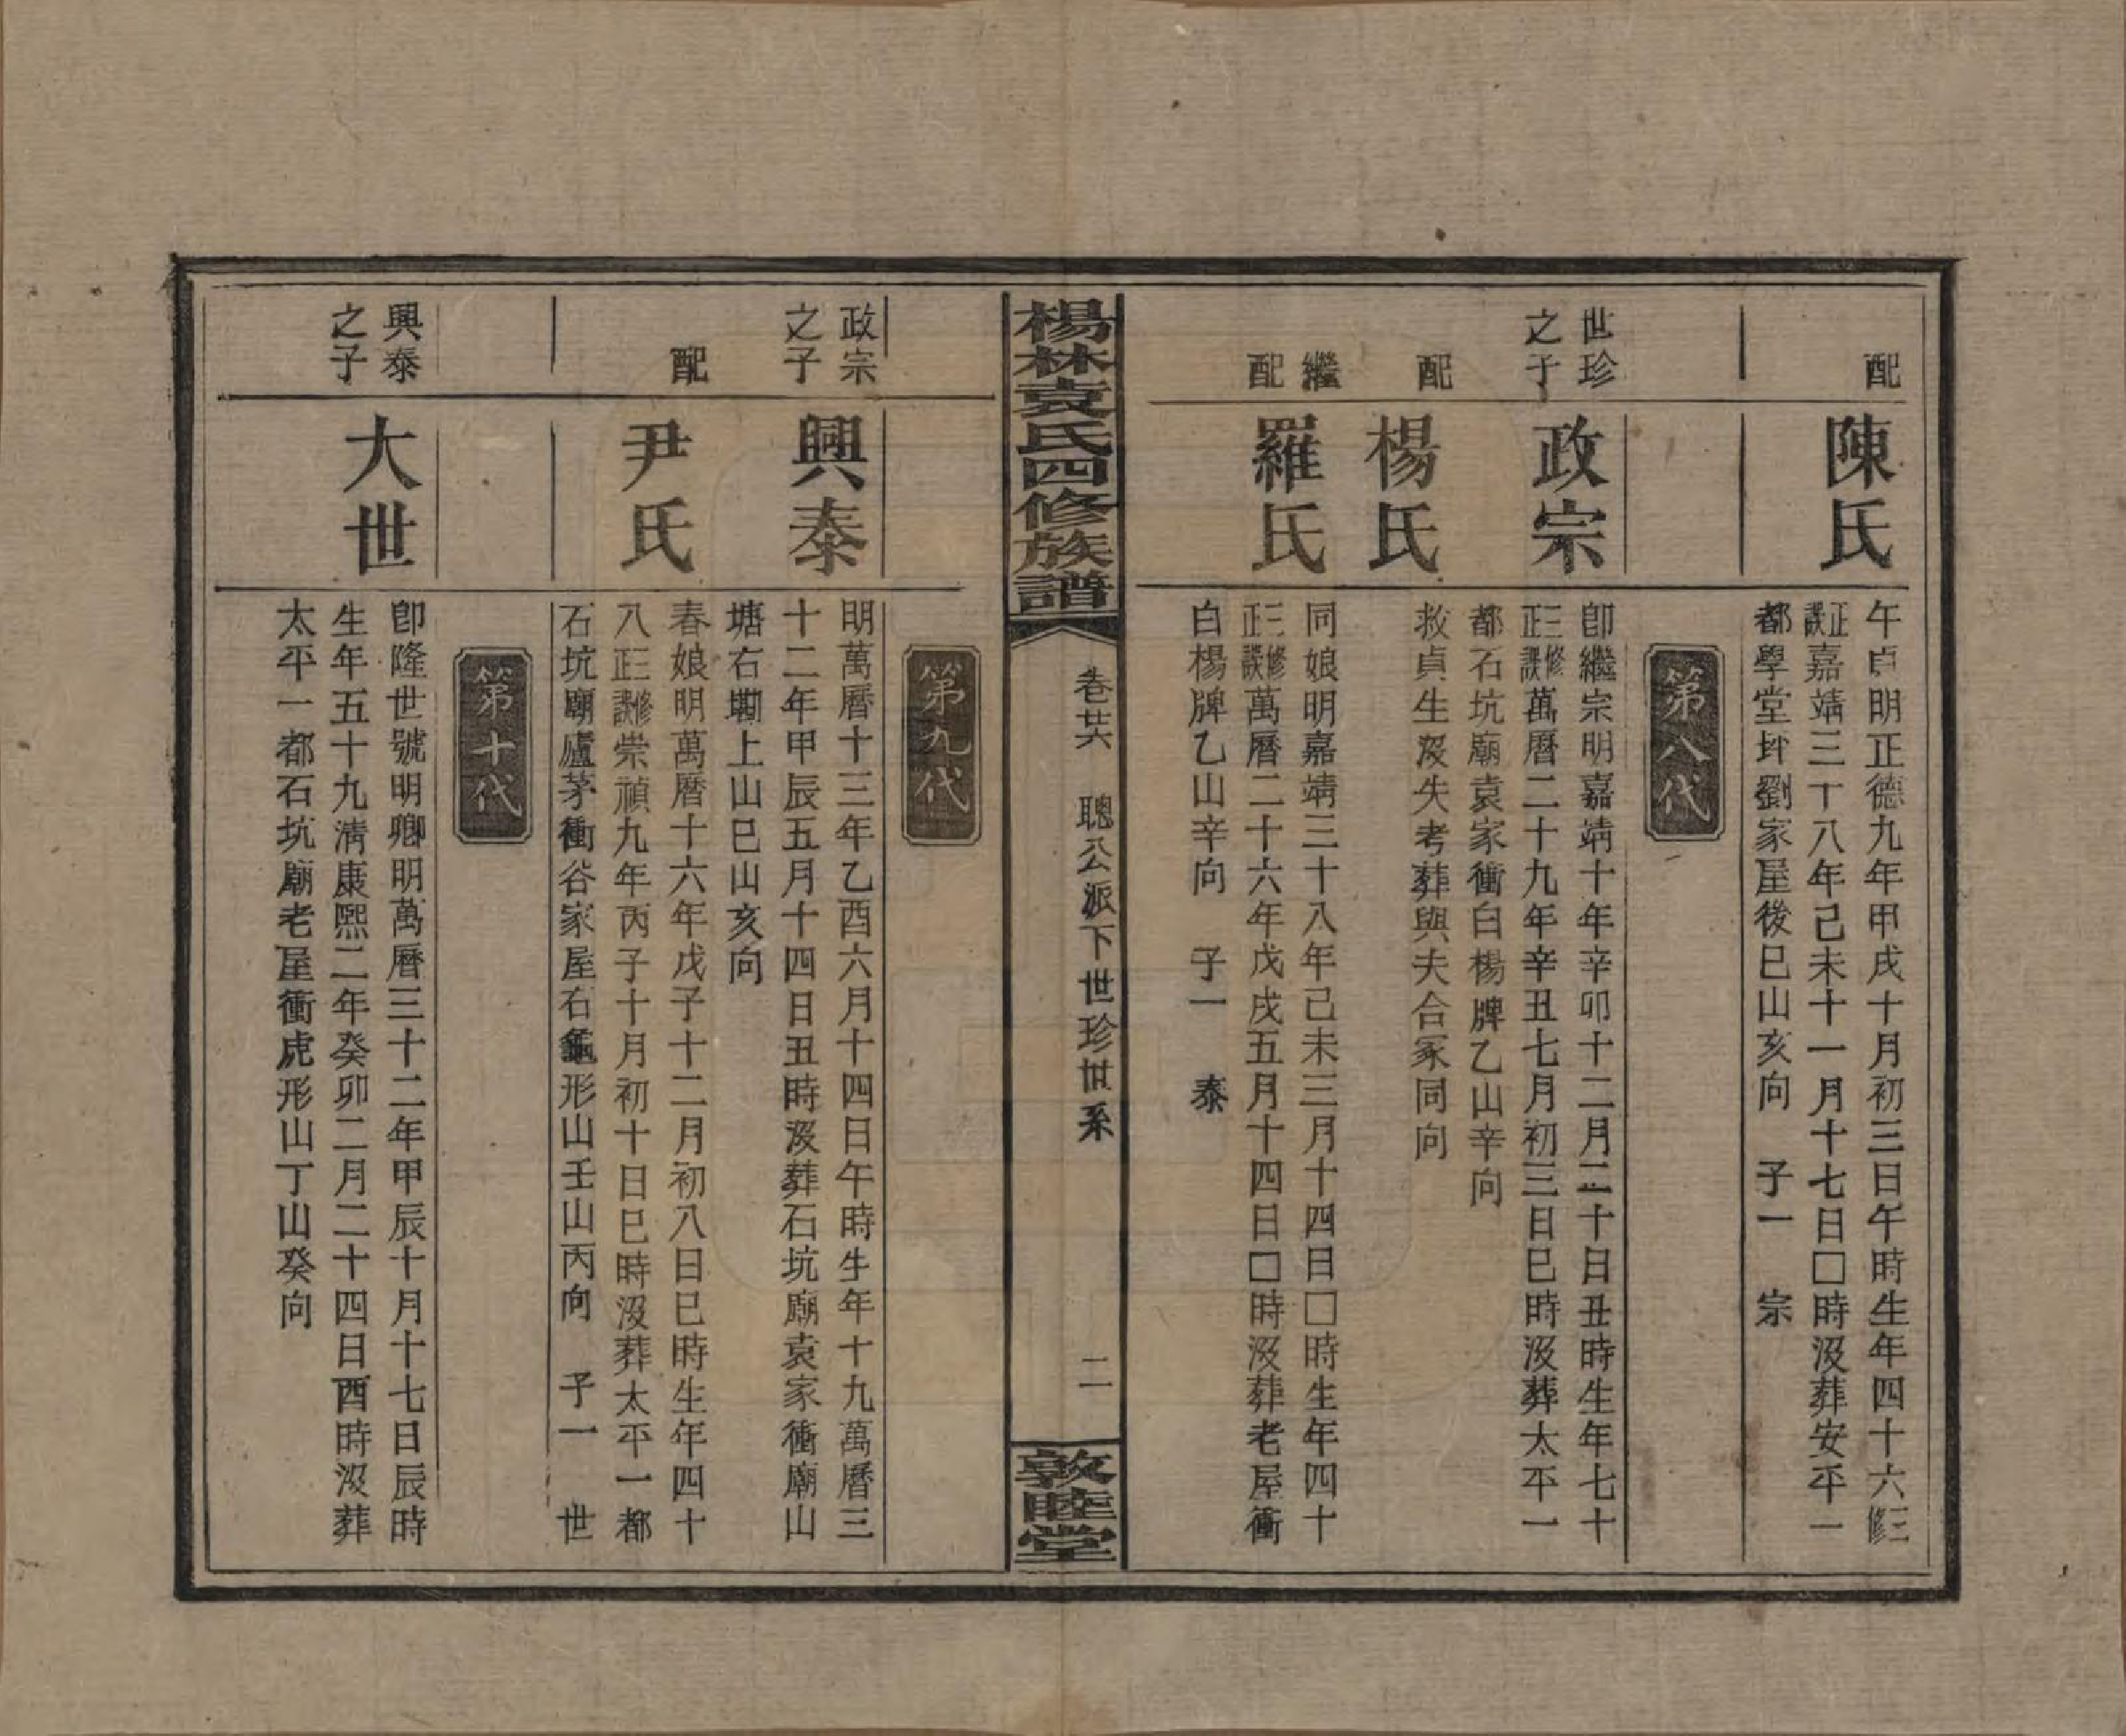 配
陳氏
午貞明正德九年甲戌十月初三日午時生年四十六三修
正誤嘉靖三十八年己未十一月十七日□時沒葬安平一
都學堂坪劉家屋後巳山亥向　子一　宗
第八代
世珍
之子
政宗
卽繼宗明嘉靖十年辛卯十二月二十日丑時生年七十
三修正誤萬曆二十九年辛丑七月初三日巳時沒葬太平一
都石坑廟袁家衝白楊牌乙山辛向
配
楊氏
救貞生沒失考葬與夫合冢同向
繼
配
羅氏
同娘明嘉靖三十八年己未三月十四日□時生年四十
三修正誤萬曆二十六年戊戌五月十四日□時沒葬老屋衝
白楊牌乙山辛向　子一　泰
楊林袁氏四修族譜
卷廿六　聰公派下世珍世系
二
敦睦堂
第九代
政宗
之子
興泰
明萬曆十三年乙酉六月十四日午時生年十九萬曆三
十二年甲辰五月十四日丑時沒葬石坑廟袁家衝廟山
塘右墈上山巳山亥向
配
尹氏
春娘明萬曆十六年戊子十二月初八日巳時生年四十
八三修正誤崇禎九年丙子十月初十日巳時沒葬太平一都
石坑廟廬茅衝谷家屋右龜形山壬山丙向　子一　世
第十代
興泰
之子
大世
卽隆世號明卿明萬曆三十二年甲辰十月十七日辰時
生年五十九清康熙二年癸卯二月二十四日酉時沒葬
太平一都石坑廟老屋衝虎形山丁山癸向